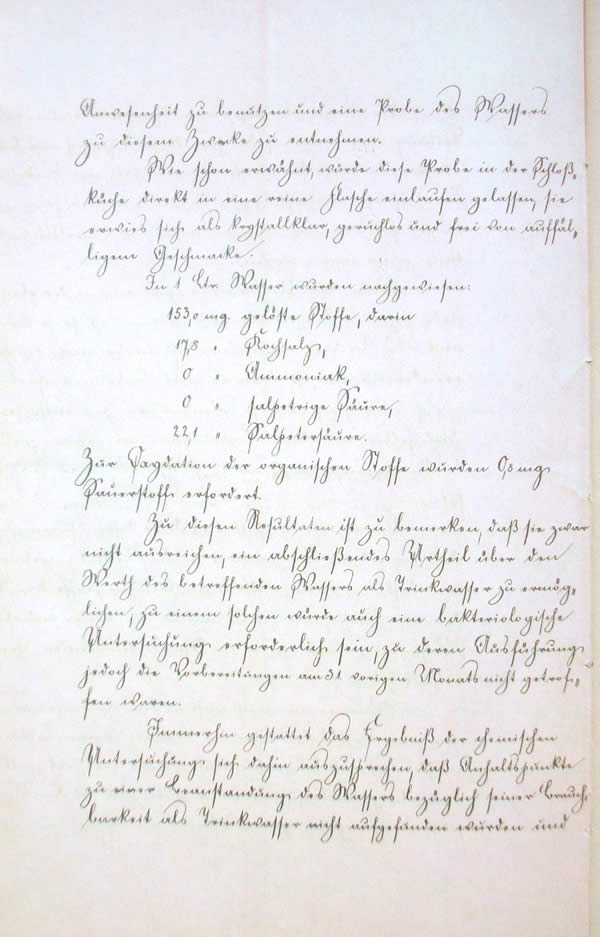 Anwesenheit zu benutzen und eine Probe des Wassers
zu diesem Zwecke zu entnehmen.
Wie schon erwähnt, wurde diese Probe in der Schloß-
küche direkt in eine reine Flasche einlaufen gelassen, sie
erwies sich als krystallklar, geruchlos und frei von auffäl-
ligem Geschmacke.
In 1 Ltr. Wasser wurden nachgewiesen:
153,0 mg. gelöste Stoffe, darin
17,8 " Kochsalz,
0 " Ammoniak,
0 " salpetrige Säure,
22,1 " Salpetersäure.
Zur Oxydation der organischen Stoffe wurden mg
Sauerstoff erfordert.
Zu diesen Resultaten ist zu bemerken, daß sie zwar
nicht ausreichen, ein abschließendes Urtheil über den
Werth des betreffenden Wassers als Trinkwasser zu ermög-
lichen, zu einem solchen würde auch eine bakteriologische
Untersuchung erforderlich sein, zu deren Ausführung
jedoch die Vorbereitungen am 31 vorigen Monats nicht getrof-
fen waren.
Immerhin gestattet das Ergebniß der chemischen
Untersuchung sich dahin auszusprechen, daß Anhaltspunkte
zu einer Beanstandung des Wassers bezüglich seiner Brauch-
barkeit als Trinkwasser nicht aufgefunden wurden und